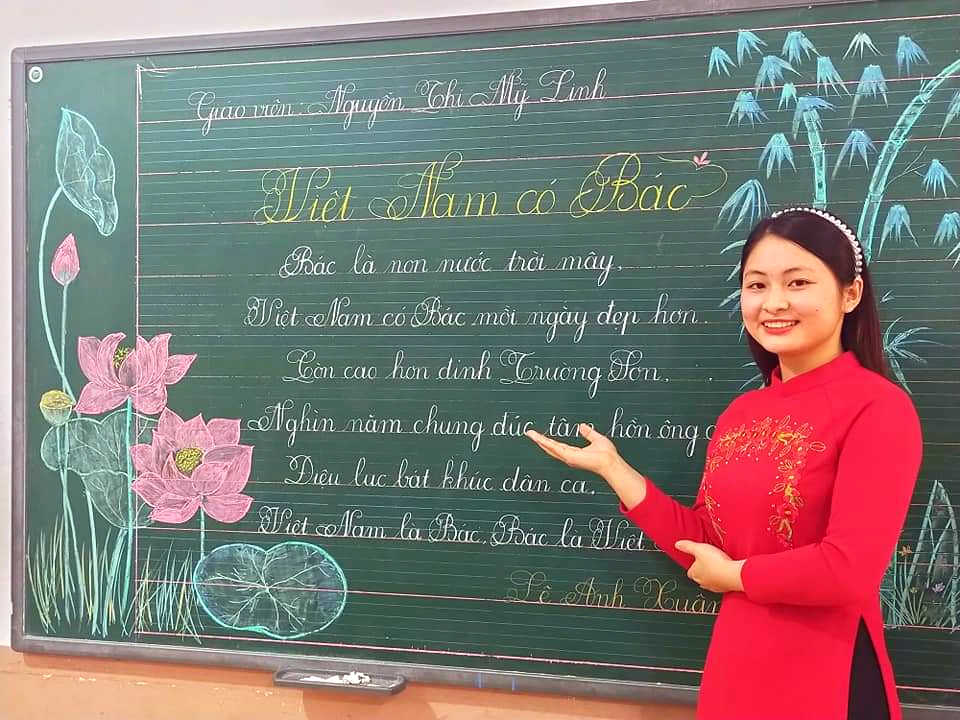 Giáo viên: Nguyễn Thị Mỹ Linh
Việt Nam có Bác
Bác là non nước trời mây,
Việt Nam có Bác mỗi ngày đẹp hơn.
Còn cao hơn đỉnh Trường Sơn,
Nghìn năm chung đúc tâm hồn ông
Điệu lục bát khúc dân ca,
Việt Nam là Bác, Bác là Việt
Lê Anh Xuân